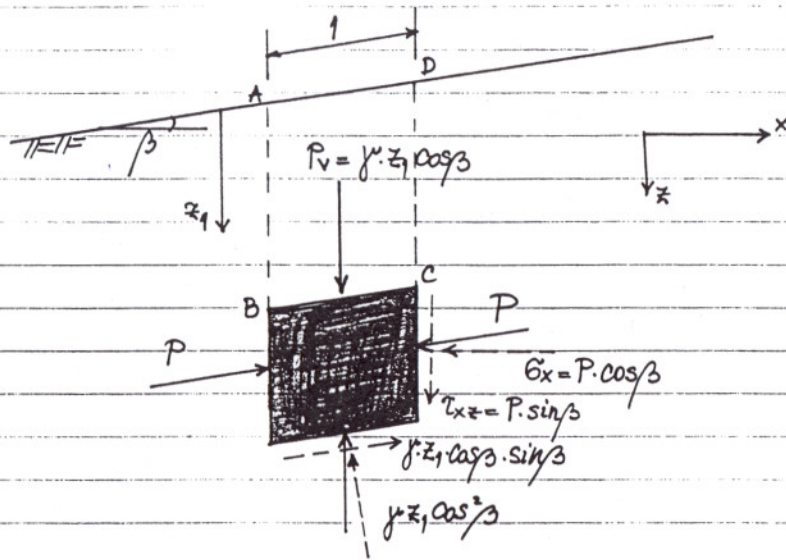 1
A
D
β
x
z
z₁
P_v = γ·z₁·cosβ
B
C
P
P
σx = P·cosβ
τxz = P·sinβ
γ·z₁·cosβ·sinβ
γ·z₁cos²β